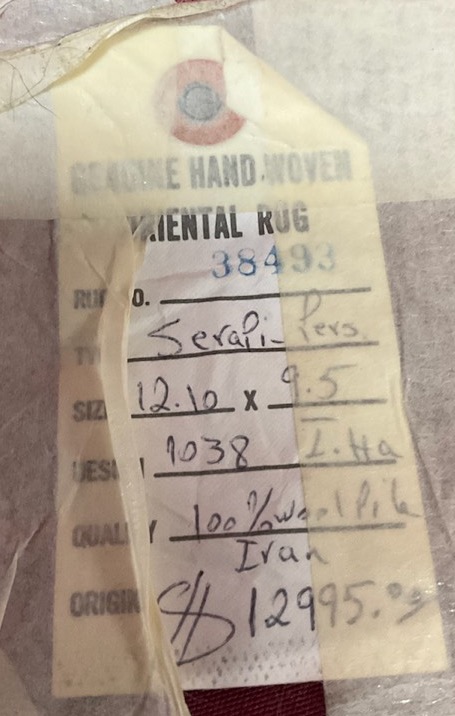 GENUINE HAND-WOVEN
ORIENTAL RUG
38493
RUG NO.
TY Serapi- Pers.
SIZE 12.10 x 9.5
DESIGN 1038 I. Ha
QUALITY 100% wool Pile
Iran
ORIGIN $12995.00